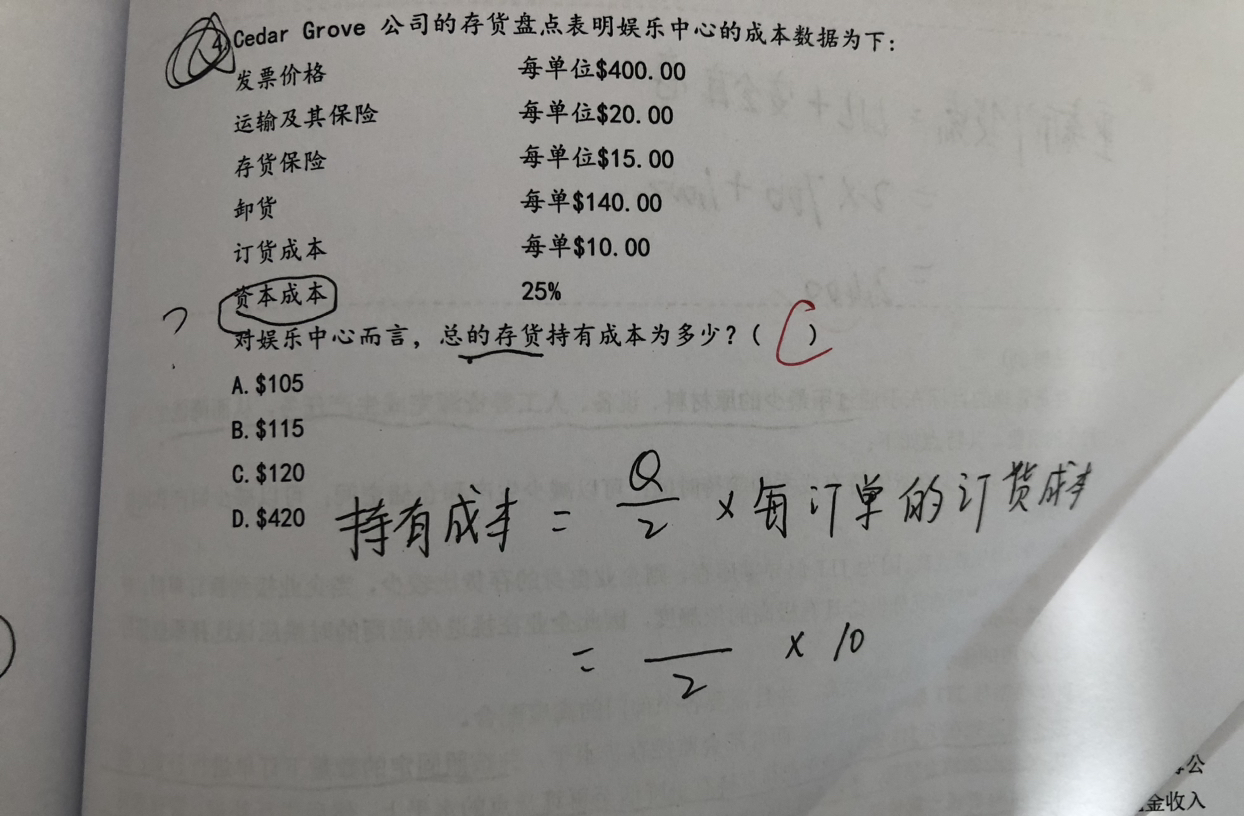 4. Cedar Grove 公司的存货盘点表明娱乐中心的成本数据为下：
发票价格 每单位$400.00
运输及其保险 每单位$20.00
存货保险 每单位$15.00
卸货 每单$140.00
订货成本 每单$10.00
资本成本 25%
?
对娱乐中心而言，总的存货持有成本为多少？（ C ）
A. $105
B. $115
C. $120
D. $420
持有成本 = Q/2 × 每订单的订货成本
= /2 × 10
公
金收入